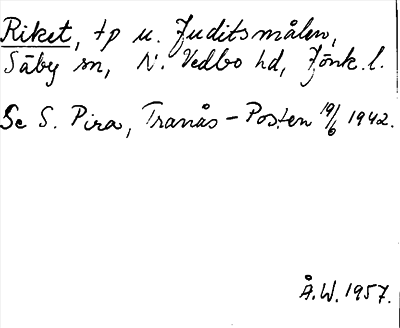 Riket, tp u. Juditsmålen,
Säby sn, N. Vedbo hd, Jönk. l.
Se S. Pira, Tranås-Posten 19/6 1942.
Å.W. 1957.